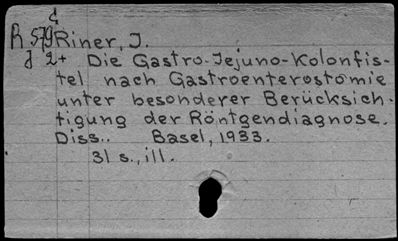 d
R 579 Riner, J.
d 2+ Die Gastro-Jejuno-Kolonfis-
tel nach Gastroenterostomie
unter besonderer Berücksich-
tigung der Röntgendiagnose.
Diss.. Basel, 1933.
31 s., ill.